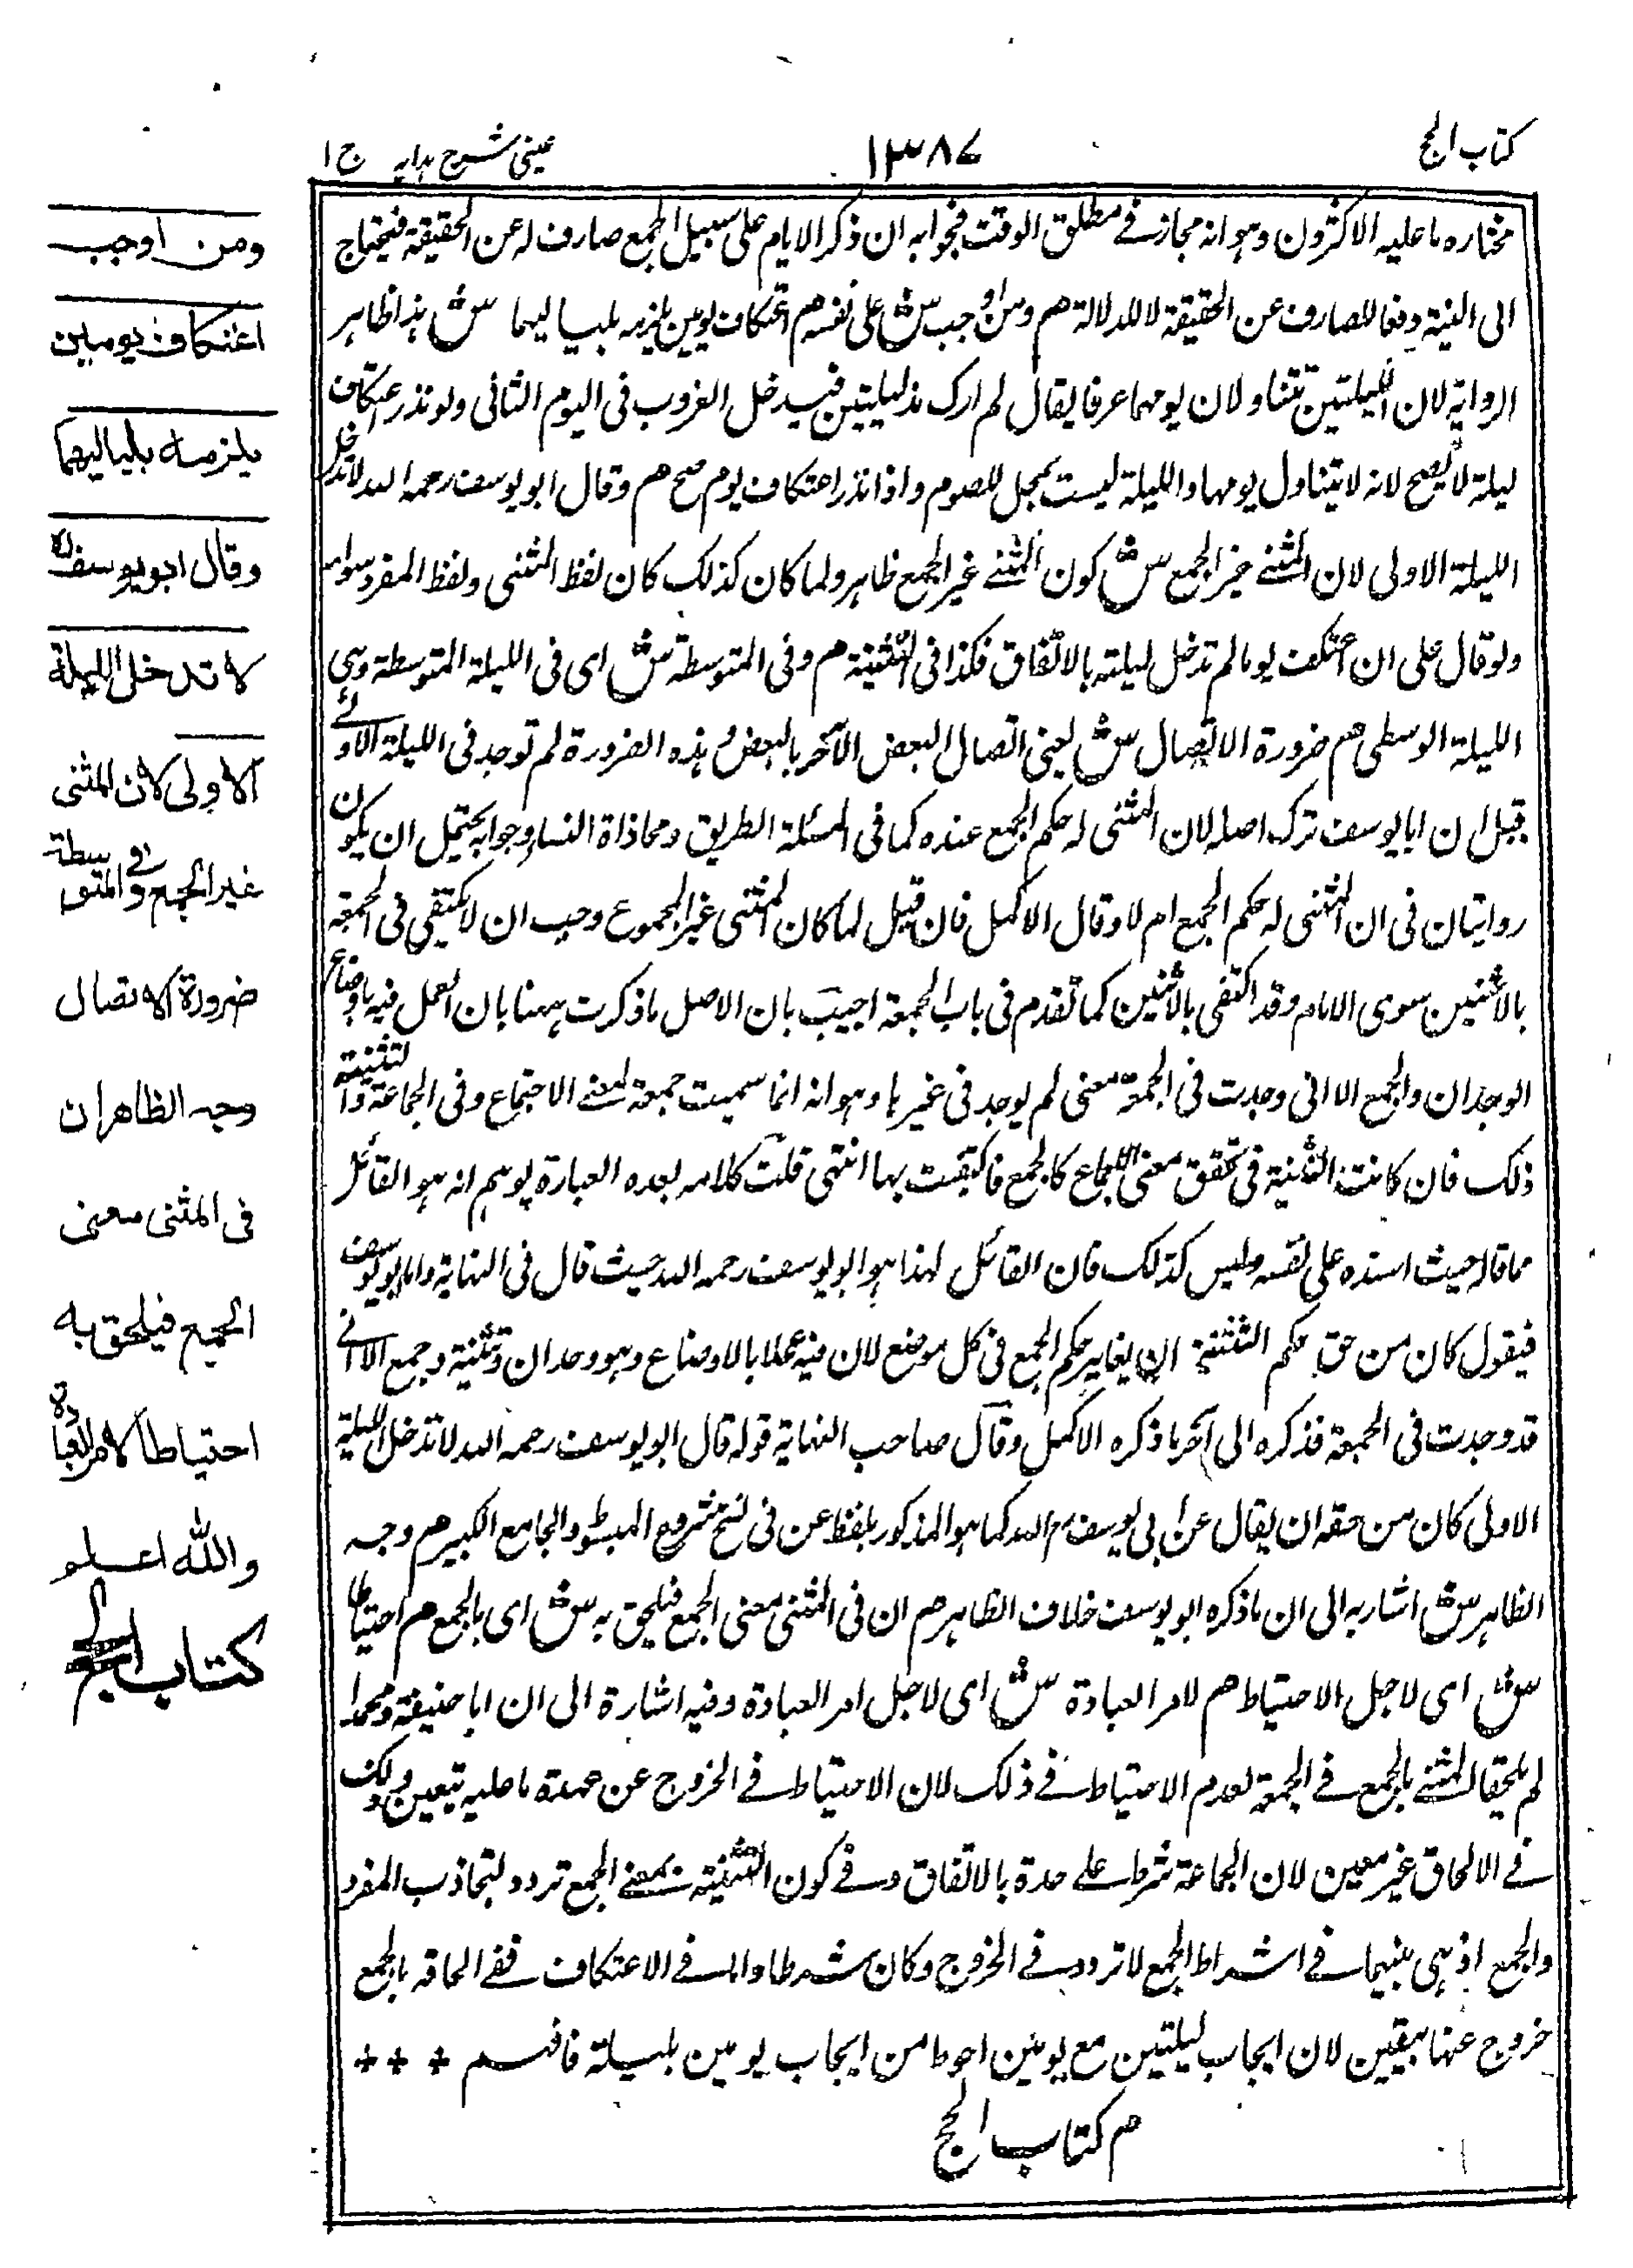 كتاب الحج
١٣٨٧
عينى شرح هدايه ج ١
مختاره ما عليه الاكثرون وهو انه مجاز فے مطلق الوقت فجوابه ان ذكر الايام على سبيل الجمع صارف له عن الحقيقة فيحتاج
الى النية دفعا للصارف عن الحقيقة لا للدلالة هم ومن اوجب ش على نفسه هم اعتكاف يومين يلزمه بلياليهما ش هذا ظاهر
الرواية لان الليلتين تتناولان يومهما عرفا يقال لم ارك مذ ليلتين فيدخل الغروب فى اليوم الثانى ولو نذر اعتكاف
ليلة لا يصح لانه لا يتناول يومها والليلة ليست بمحل للصوم واذا نذر اعتكاف يوم صح هم وقال ابو يوسف رحمه الله لا تدخل
الليلة الاولى لان المثنے غير الجمع ش كون المثنے غير الجمع ظاهر ولما كان كذلك كان لفظ المثنى ولفظ المفرد سواء
ولو قال على ان اعتكف يوما لم تدخل ليلته بالاتفاق فكذا فى التثنية هم وفى المتوسطة ش اى فى الليلة المتوسطة وهى
الليلة الوسطى هم ضرورة الاتصال ش يعنى اتصال البعض الآخر بالبعض و هذه الضرورة لم توجد فى الليلة الاولے
قيل ان ابا يوسف ترك اصله لان المثنى له حكم الجمع عنده كما فى المسئلة الطريق ومحاذاة النساء وجوابه يحتمل ان يكون
روايتان فى ان المثنى له حكم الجمع ام لا وقال الاكمل فان قيل لما كان المثنى غير المجموع وجب ان لا يكتفى فى الجمعة
بالاثنين سوى الامام وقد اكتفى بالاثنين كما تقدم فى باب الجمعة اجيب بان الاصل ما ذكرت ههنا بان العمل فيه باوضاع
الوحدان والجمع الا انى وجدت فى الجمعة معنى لم يوجد فى غيرها وهو انه انما سميت جمعة لمعنے الاجتماع وفى الجماعة والتثنية
ذلك فان كانت التثنية فى تحقق معنى الاجتماع كالجمع فاكتفيت بها انتهى قلت كلامه بعده العبارة يوهم انه هو القائل
مما قاله حيث اسنده على نفسه وليس كذلك فان القائل لهذا هو ابو يوسف رحمه الله حيث قال فى النهاية واما ابو يوسف
فيقول كان من حق حكم التثنية ان يغاير حكم الجمع فى كل موضع لان فيه عملا بالاوضاع وهو وحدان وتثنية وجمع الا انے
قد وجدت فى الجمعة فذكره الى آخر ما ذكره الاكمل وقال صاحب النهاية قوله قال ابو يوسف رحمه الله لا تدخل الليلة
الاولى كان من حقه ان يقال عن ابى يوسف رح الله كما هو المذكور بلفظ عن فى نسخ شروح المبسوط والجامع الكبير هم وجه
الظاهر ش اشار به الى ان ما ذكره ابو يوسف خلاف الظاهر هم ان فى المثنى معنى الجمع فيلحق به ش اى بالجمع هم احتياطا
ش اى لاجل الاحتياط هم لامر العبادة ش اى لاجل امر العبادة وفيه اشارة الى ان ابا حنيفة ومحمدا
لم يلحقا المثنے بالجمع فے الجمعة لعدم الاحتياط فے ذلك لان الاحتياط فے الخروج عن عهدة ما عليه بيقين وذلك
فے الالحاق غير معين لان الجماعة شرط على حدة بالاتفاق وفے كون التثنية بمعنے الجمع تردد لتجاذب المفرد
والجمع اذ هى بينهما فے اشتراط الجمع لا تردد فے الخروج وكان شرطا واما فے الاعتكاف ففے الحاقه بالجمع
خروج عنها بيقين لان ايجاب ليلتين مع يومين احوط من ايجاب يومين بليلة فافهم + + +
م كتاب الحج
ومن اوجب
اعتكاف يومين
يلزمه بلياليهما
وقال ابو يوسف رح
لا تدخل الليلة
الاولى لان المثنى
غير الجمع وفى المتوسطة
ضرورة الاتصال
وجه الظاهر ان
فى المثنى معنى
الجمع فيلحق به
احتياطا لامر العبادة
والله اعلم
كتاب الحج